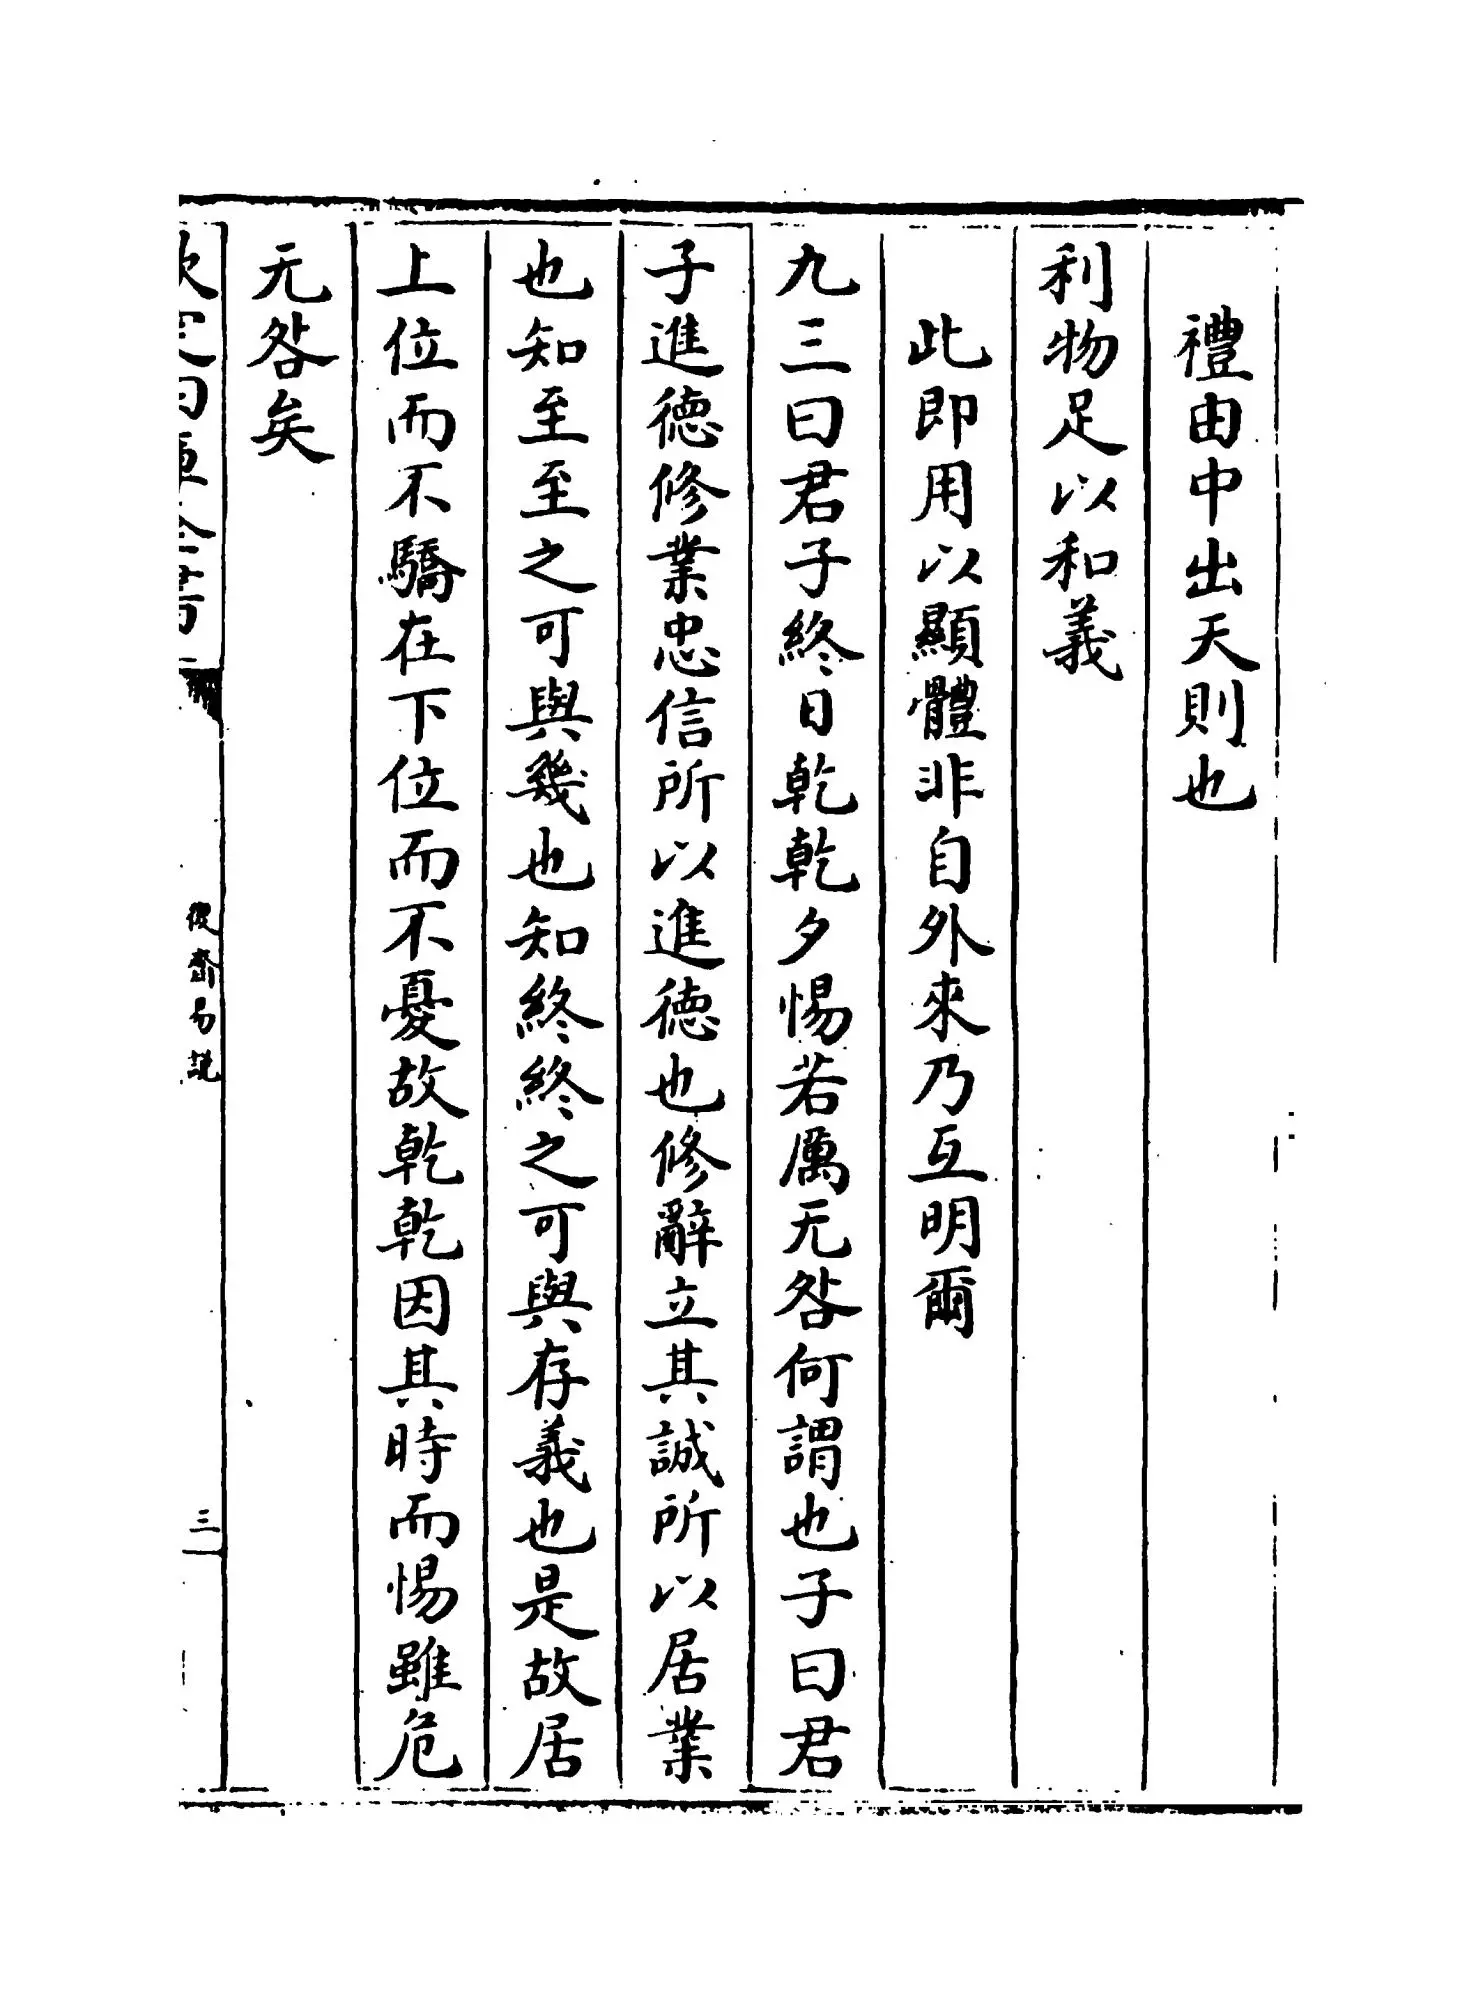 禮由中出天則也
利物足以和義
此即用以顯體非自外來乃互明爾
九三曰君子終日乾乾夕惕若厲无咎何謂也子曰君
子進德修業忠信所以進德也修辭立其誠所以居業
也知至至之可與幾也知終終之可與存義也是故居
上位而不驕在下位而不憂故乾乾因其時而惕雖危
无咎矣
欽定四庫全書
復齋易說
三